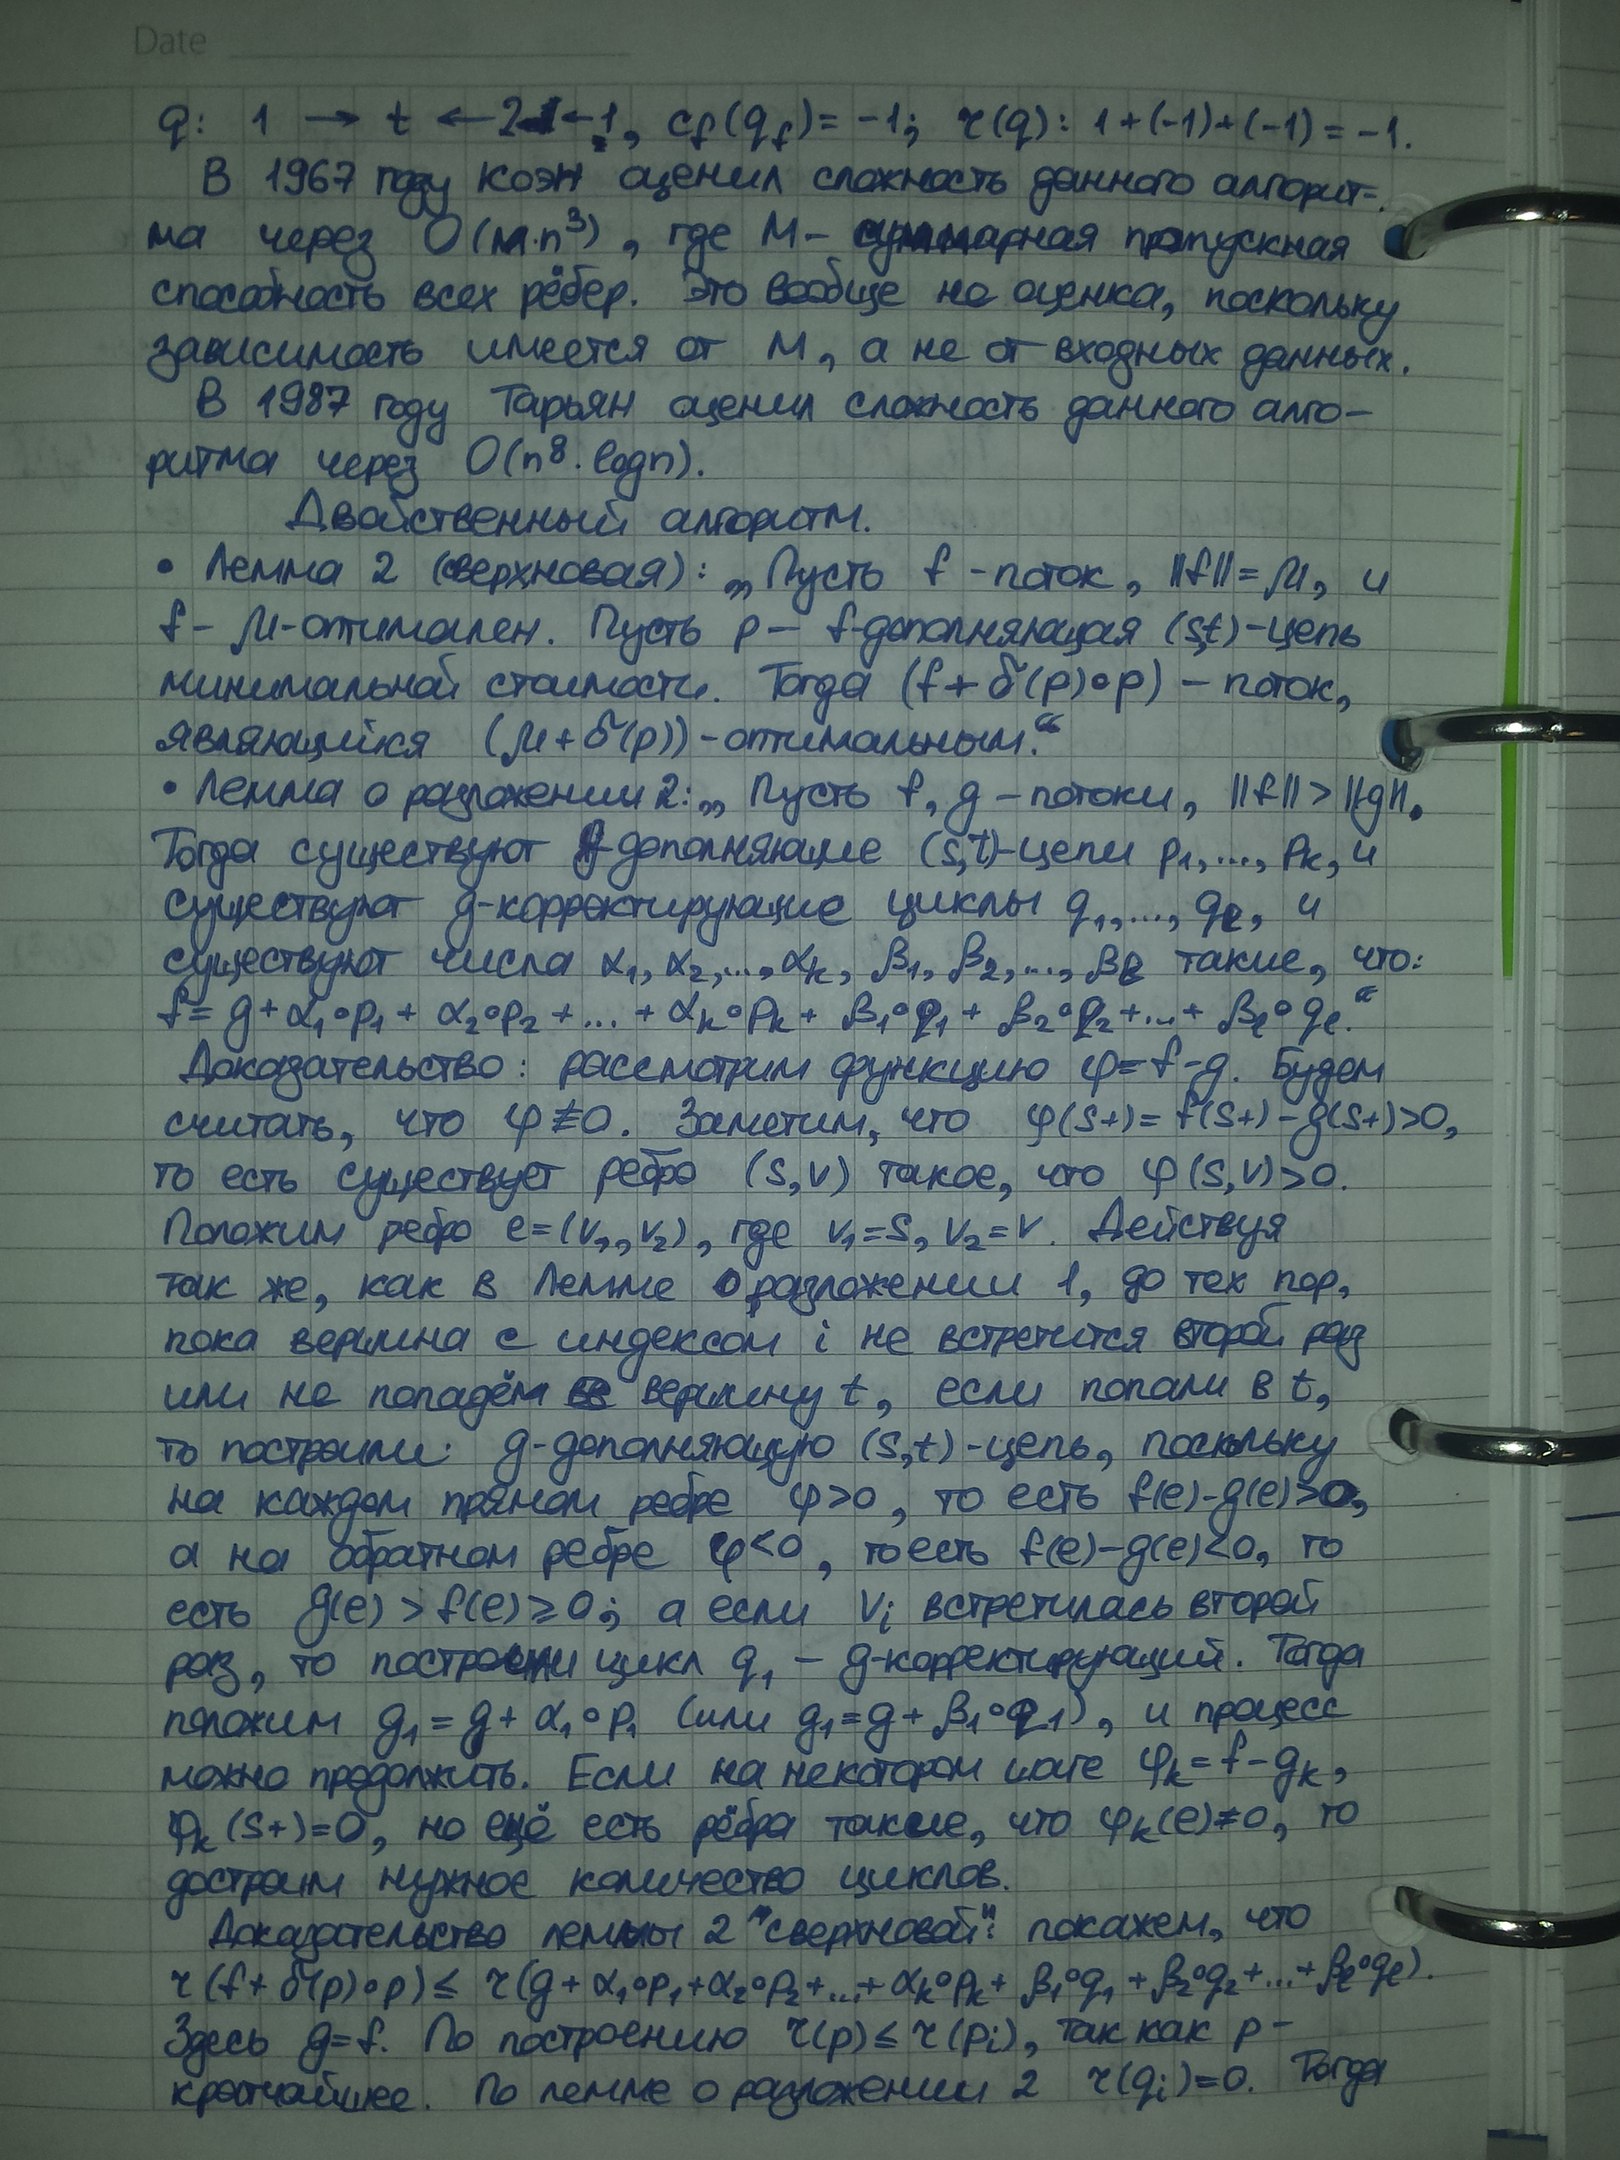 Date
q: 1 → t ← 2 ← 1, c_f(q_f) = -1; r(q): 1+(-1)+(-1) = -1.
В 1967 году Коэн оценил сложность данного алгорит-
ма через O(м·n³), где M – суммарная пропускная
способность всех рёбер. Это вообще не оценка, поскольку
зависимость имеется от M, а не от входных данных.
В 1987 году Тарьян оценил сложность данного алго-
ритма через O(n⁸·logn).
Двойственный алгоритм.
• Лемма 2 (сверхновая): „Пусть f - поток, ||f||=μ, и
f - μ-оптимален. Пусть p – f-дополняющая (s,t)-цепь
минимальной стоимости. Тогда (f + δ(p)∘p) – поток,
являющийся (μ+δ(p))-оптимальным.“
• Лемма о разложении 2: „Пусть f, g – потоки, ||f|| > ||g||.
Тогда существуют g-дополняющие (s,t)-цепи p₁,..., pₖ, и
существуют g-корректирующие циклы q₁,..., qₗ, и
существуют числа α₁, α₂,..., αₖ, β₁, β₂,..., βₗ такие, что:
f = g + α₁∘p₁ + α₂∘p₂ + ... + αₖ∘pₖ + β₁∘q₁ + β₂∘q₂ +...+ βₗ∘qₗ.“
Доказательство: рассмотрим функцию φ=f-g. Будем
считать, что φ≢0. Заметим, что φ(s+)= f(s+) - g(s+)>0,
то есть существует ребро (s,v) такое, что φ(s,v)>0.
Положим ребро e=(v₁,v₂), где v₁=s, v₂=v. Действуя
так же, как в Лемме о разложении 1, до тех пор,
пока вершина с индексом i не встретится второй раз
или не попадём в вершину t, если попали в t,
то построили g-дополняющую (s,t)-цепь, поскольку
на каждом прямом ребре φ>0, то есть f(e)-g(e)>0,
а на обратном ребре φ<0, то есть f(e)-g(e)<0, то
есть g(e) > f(e) ≥ 0; а если vᵢ встретилась второй
раз, то построили цикл q₁ – g-корректирующий. Тогда
положим g₁ = g + α₁∘p₁ (или g₁ = g + β₁∘q₁), и процесс
можно продолжить. Если на некотором шаге φₖ = f - gₖ,
φₖ(s+)=0, но ещё есть рёбра такие, что φₖ(e)≠0, то
достроим нужное количество циклов.
Доказательство леммы 2 "сверхновой": покажем, что
r(f + δ(p)∘p) ≤ r(g + α₁∘p₁+α₂∘p₂+...+ αₖ∘pₖ + β₁∘q₁ + β₂∘q₂+...+βₗ∘qₗ).
Здесь g=f. По построению r(p) ≤ r(pᵢ), так как p -
кратчайшее. По лемме о разложении 2 r(qᵢ)=0. Тогда